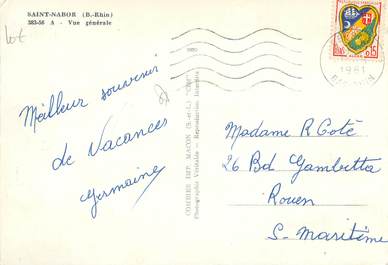 SAINT-NABOR (B.-Rhin)
383-56 A - Vue générale
lot
Meilleur souvenir
de Vacances
Germaine
COMBIER IMP. MACON (S.-et-L.) "CIM"
Photographie Véritable - Reproduction Interdite
1961
0,15
Madame R Coté
26 Bd Gambetta
Rouen
S-Maritime